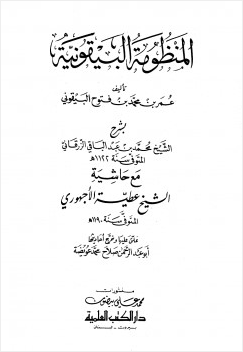 المنظومة البيقونية
تأليف
عمر بن محمد بن فتوح البيقوني
بشرح
الشيخ محمد بن عبد الباقي الزرقاني
المتوفى سنة ١١٢٢هـ
مع حاشية
الشيخ عطية الأجهوري
المتوفى سنة ١١٩٠هـ
علق عليها وخرج أحاديثها
أبو عبد الرحمن صلاح محمد عويضة
منشورات
محمد علي بيضون
دار الكتب العلمية
بيروت - لبنان